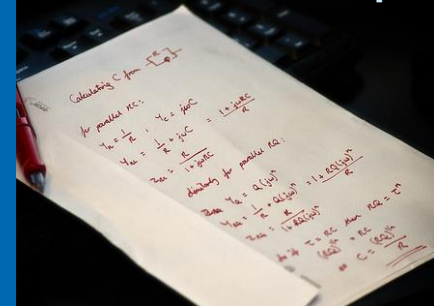 Calculating C from
for parallel RC:
Y_R = 1/R ; Y_C = jωC
Y_RC = 1/R + jωC = (1 + jωRC)/R
Z_RC = R/(1 + jωRC)
similarly for parallel RQ:
Y_Q = Q(jω)^n
Y_RQ = 1/R + Q(jω)^n = (1 + RQ(jω)^n)/R
Z_RQ = R/(1 + RQ(jω)^n)
so if τ = RC then RQ = τ^n
(RQ)^(1/n) = RC
C = (RQ)^(1/n)/R